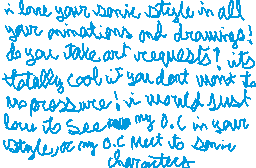 i love your sonic style in all
your animations and drawings!
do you take art requests? its
totally cool if you dont want to
no pressure! i would just
love to see my O.C in your
style, or my O.C meet to sonic
characters